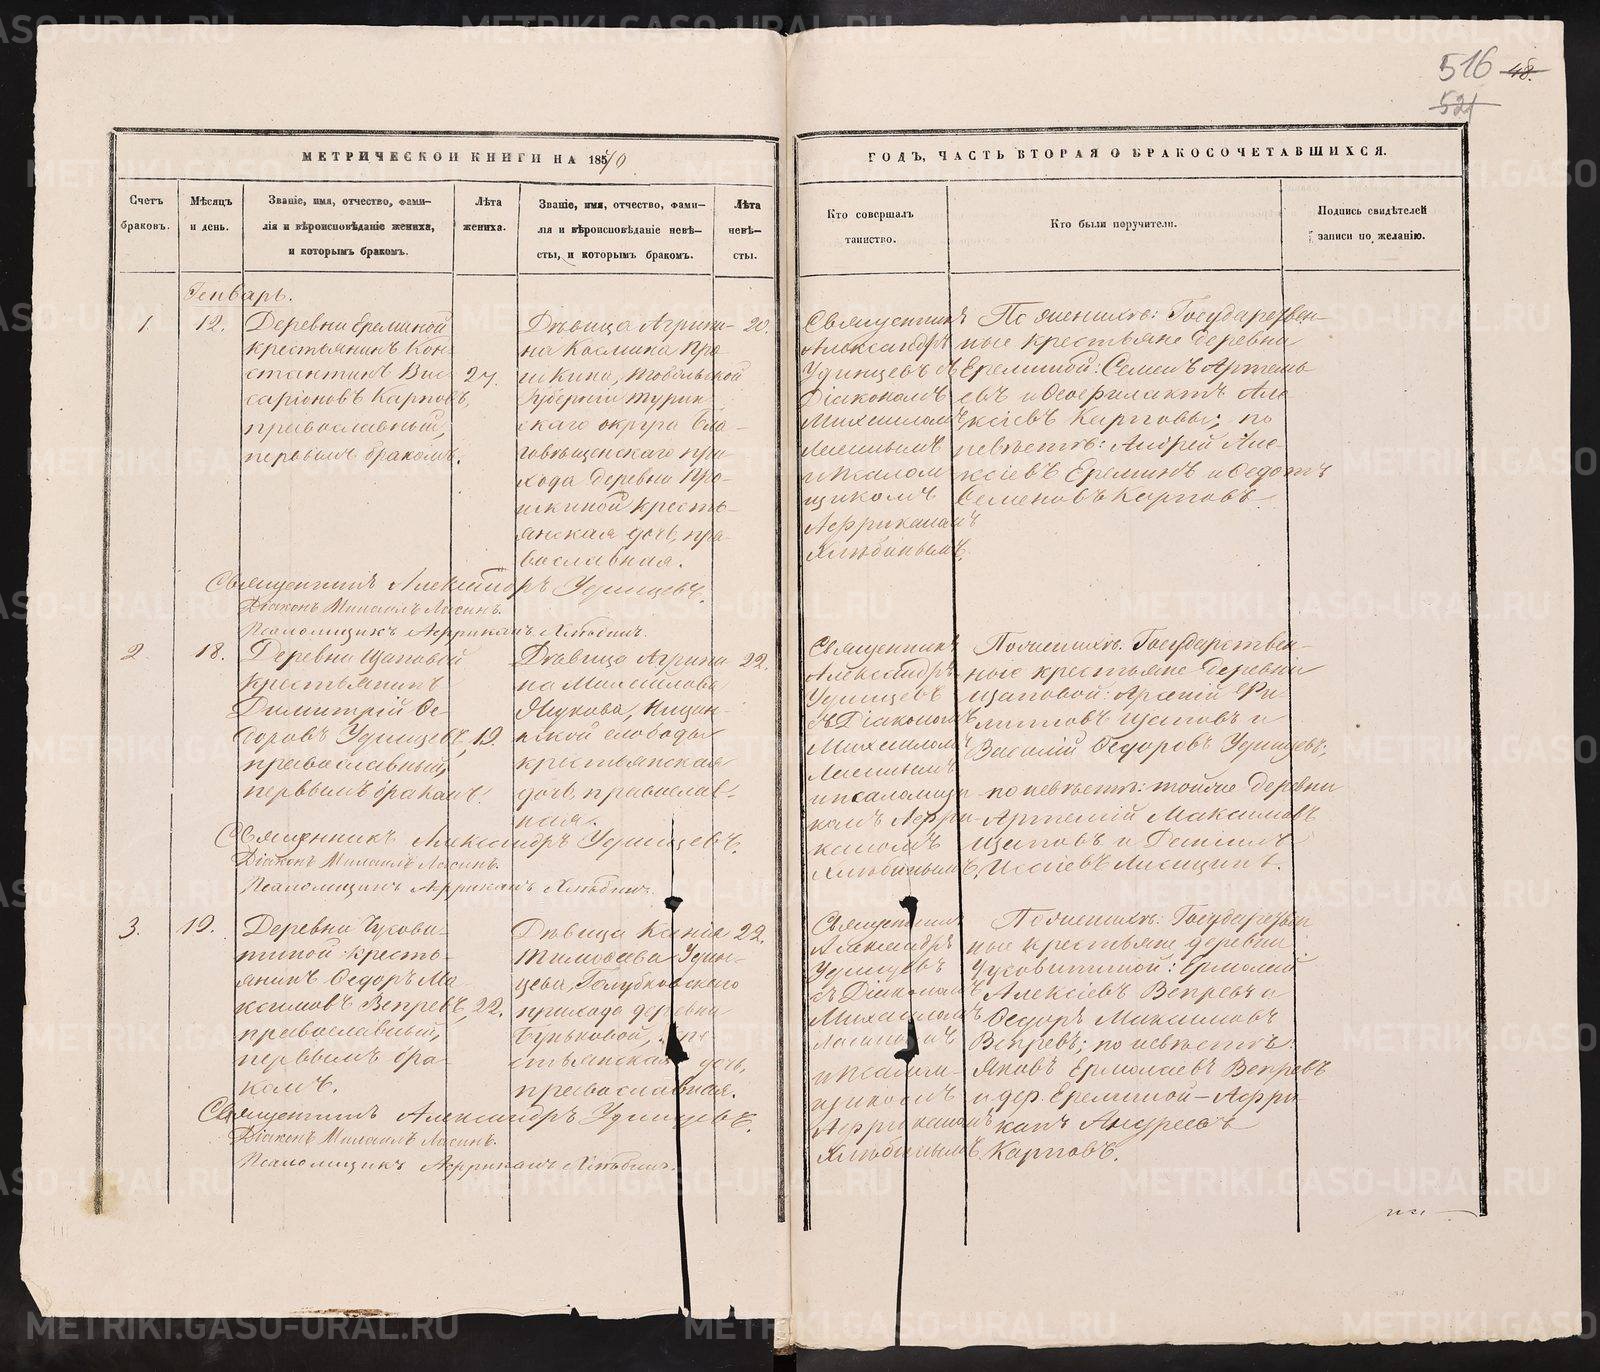 516 48.
521
МЕТРИЧЕСКОЙ КНИГИ НА 1870
ГОДЪ, ЧАСТЬ ВТОРАЯ О БРАКОСОЧЕТАВШИХСЯ.
Счетъ браковъ.
Мѣсяцъ и день.
Званіе, имя, отчество, фами-
лія и вѣроисповѣданіе жениха,
и которымъ бракомъ.
Лѣта жениха.
Званіе, имя, отчество, фами-
лія и вѣроисповѣданіе невѣ-
сты, и которымъ бракомъ.
Лѣта невѣ-
сты.
Кто совершалъ
таинство.
Кто были поручители.
Подпись свидѣтелей
записи по желанію.
Генварь.
1
12.
Деревни Ереминой
крестьянинъ Кон-
стантинъ Вис-
саріоновъ Карповъ,
православный,
первымъ бракомъ.
27.
Дѣвица Агрипи-
на Космина Про-
шкина, Тобольской
Губерніи Турин-
скаго округа Бла-
говѣщенскаго при-
хода деревни Про-
шкиной кресть-
янская дочь, пра-
вославная.
20.
Священникъ
Александръ
Удинцевъ съ
Діакономъ
Михаиломъ
Ласинымъ
и Псалом-
щикомъ
Африканомъ
Хлѣбинымъ.
По женихѣ: Государствен-
ные крестьяне деревни
Ереминой: Семенъ Артемь-
евъ и Феофилактъ Але-
ксѣевъ Карповы; по
невѣстѣ: Андрей Але-
ксѣевъ Ереминъ и Федотъ
Семеновъ Карповъ
Священникъ Александръ Удинцевъ.
Діаконъ Михаилъ Ласинъ.
Псаломщикъ Африканъ Хлѣбинъ.
2
18.
Деревни Щаповой
крестьянинъ
Димитрій Ѳе-
доровъ Удинцевъ,
православный,
первымъ бракомъ.
19.
Дѣвица Агрипи-
на Михайлова
Жукова, Ницин-
ской слободы
крестьянская
дочь, православ-
ная.
22.
Священникъ
Александръ
Удинцевъ
съ Діакономъ
Михаиломъ
Ласинымъ
и псаломщи-
комъ Афри-
каномъ
Хлѣбинымъ.
По женихѣ: Государствен-
ные крестьяне деревни
Щаповой: Арсеній Фи-
липповъ Щаповъ и
Василій Ѳедоровъ Удинцевъ;
по невѣстѣ: той же деревни
Артемій Максимовъ
Щаповъ и Даніилъ
Священникъ Александръ Удинцевъ.
Діаконъ Михаилъ Ласинъ.
Псаломщикъ Африканъ Хлѣбинъ.
3.
19.
Деревни Чусови-
тиной кресть-
янинъ Ѳедоръ Ма-
ксимовъ Вепревъ,
православный,
первымъ бра-
комъ.
22.
Дѣвица Ксенія
Тимоѳеева Удин-
цева, Голубковскаго
прихода деревни
Бунковой, кре-
стьянская дочь,
православная.
22.
Священникъ
Александръ
Удинцевъ
съ Діакономъ
Михаиломъ
Ласинымъ
и Псалом-
щикомъ
Африканомъ
Хлѣбинымъ.
По женихѣ: Государствен-
ные крестьяне деревни
Чусовитиной: Ермолай
Алексѣевъ Вепревъ и
Ѳедоръ Максимовъ
Вепревъ; по невѣстѣ:
Яковъ Ермолаевъ Вепревъ
и дер. Ереминой - Афри-
канъ Андреевъ
Карповъ.
Священникъ Александръ Удинцевъ.
Діаконъ Михаилъ Ласинъ.
Псаломщикъ Африканъ Хлѣбинъ.
METRIKI.GASO-URAL.RU